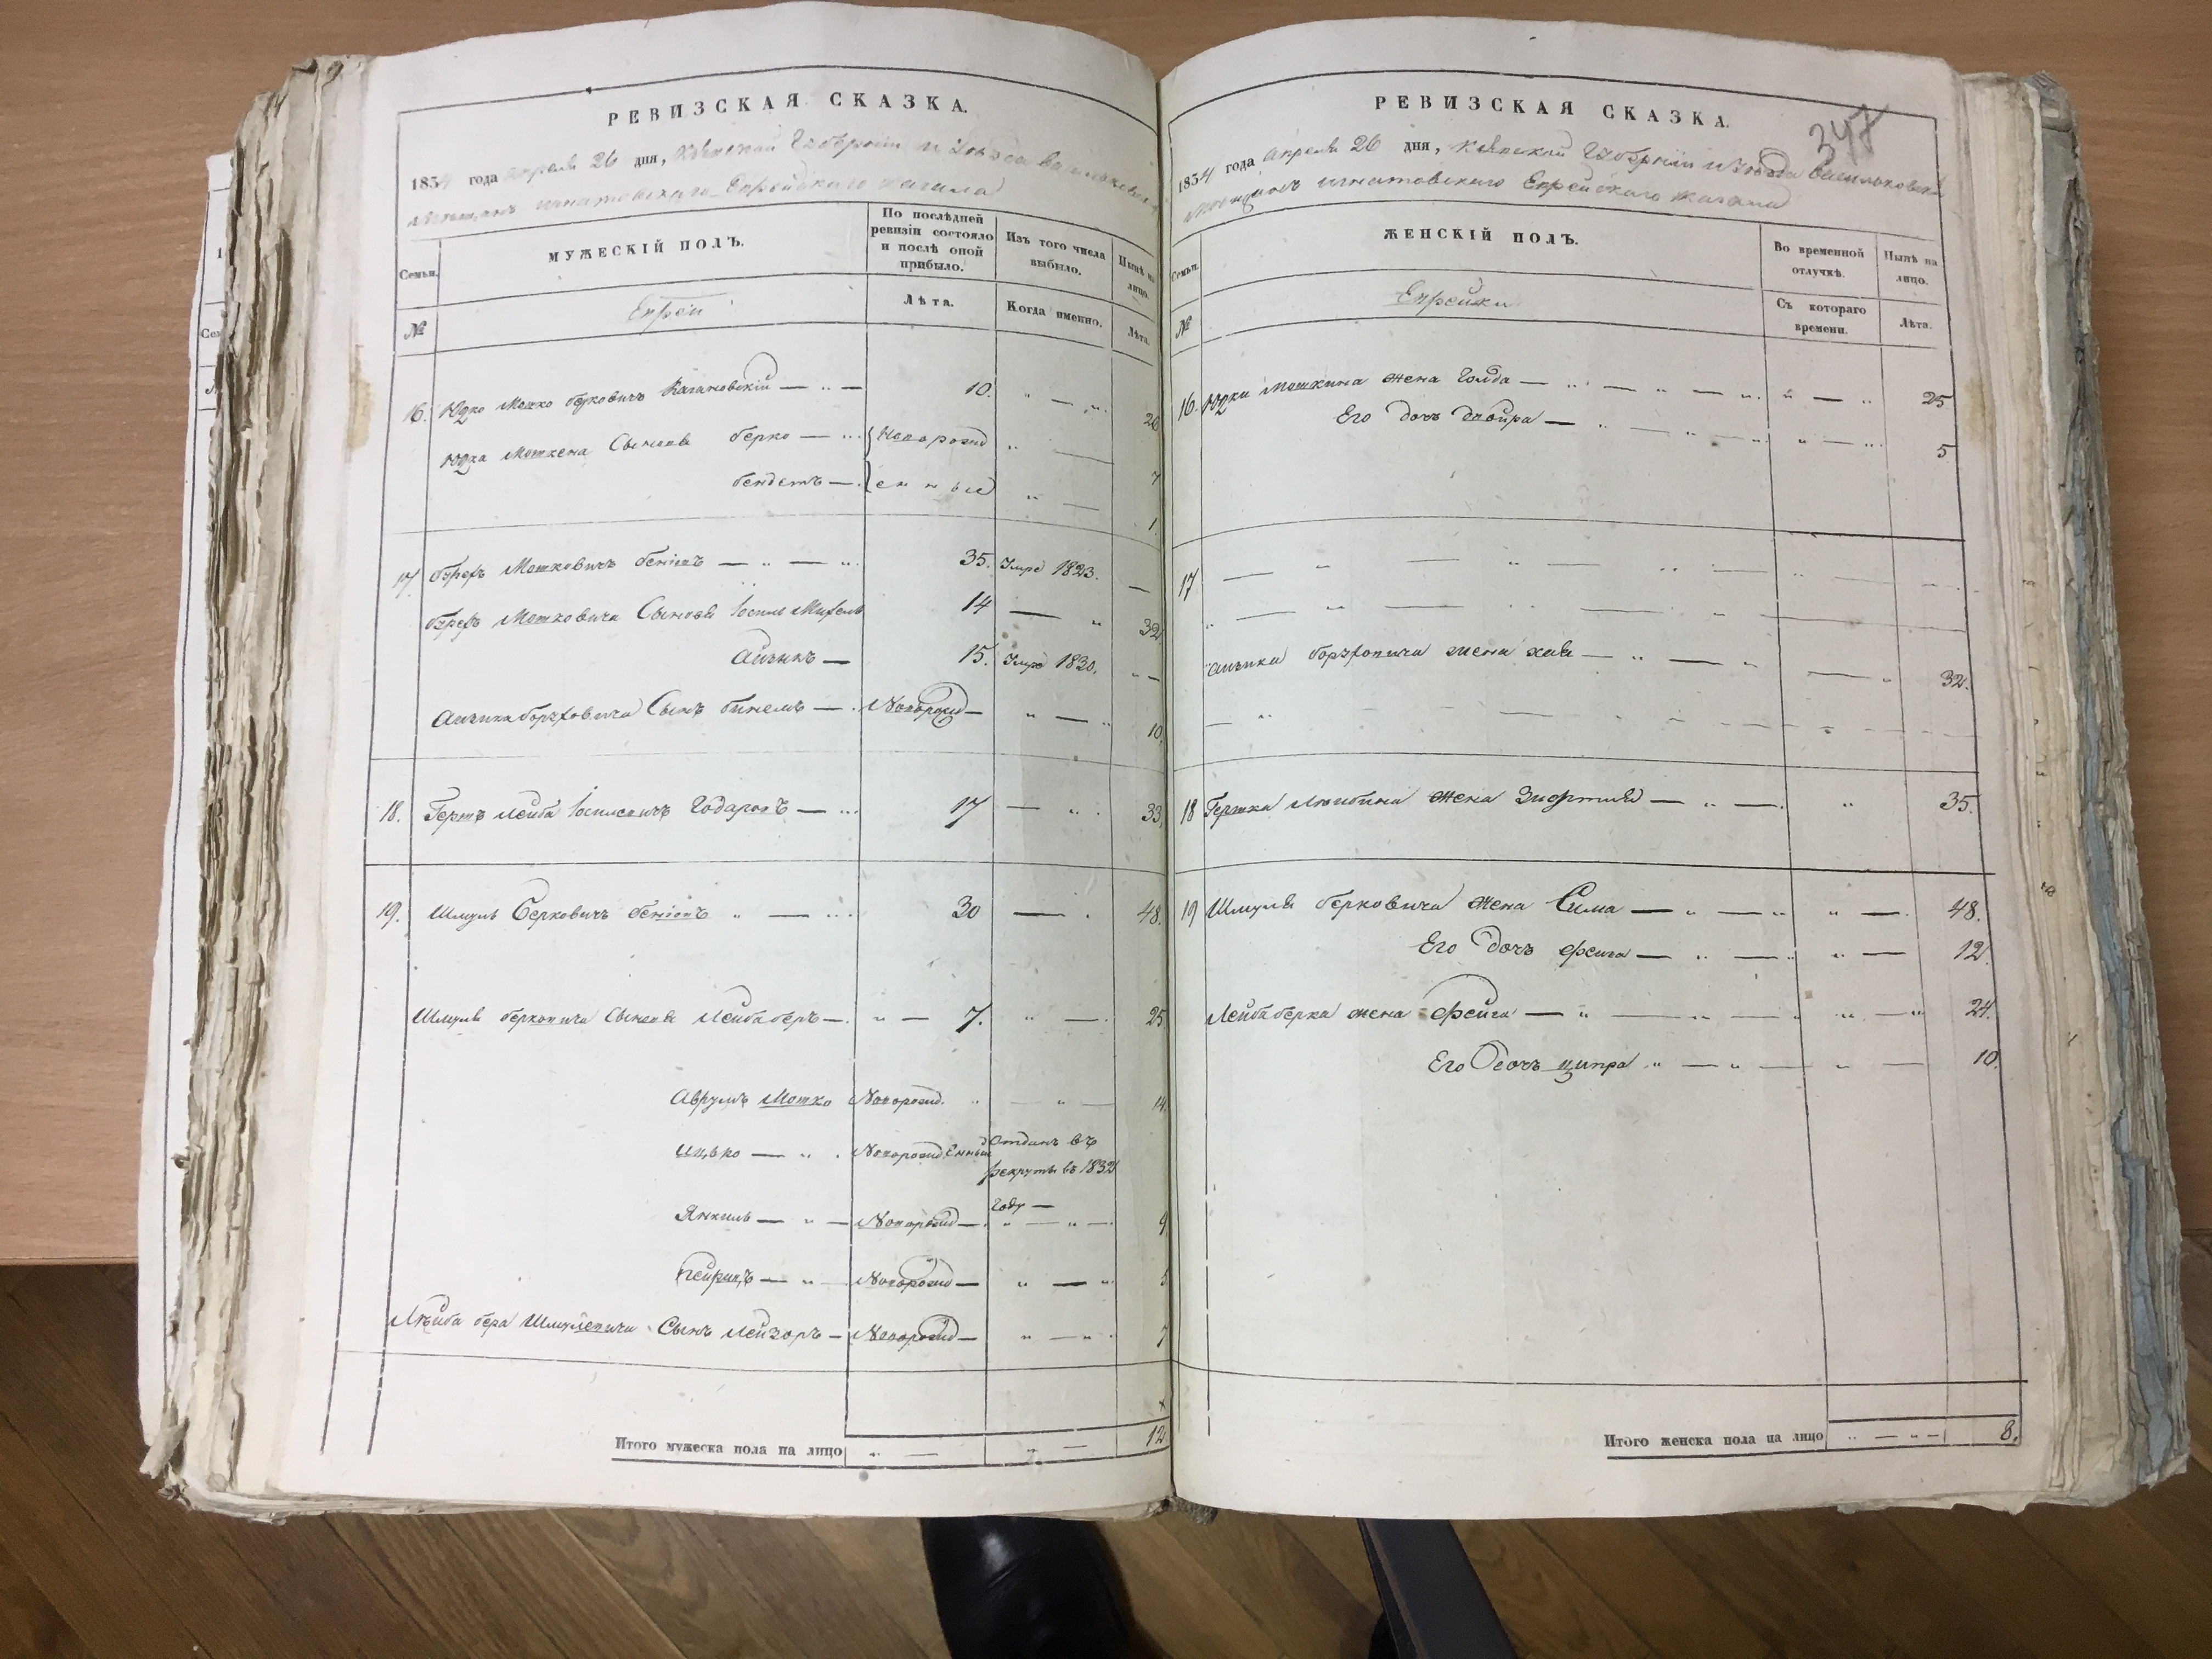 РЕВИЗСКАЯ СКАЗКА.
1834 года апреля 26 дня, Кіевской Губерніи и Уезда Васильковскаго
мещанъ игнатовского Еврейского кагала
Семьи.
МУЖЕСКІЙ ПОЛЪ.
По послѣдней ревизіи состояло и послѣ оной прибыло.
Изъ того числа выбыло.
Нынѣ на лицо.
№
Евреи
Лѣта.
Когда именно.
Лѣта.
16. Юдко Мошко берковичъ Кагановскій — „ — 10. „ — „ 26
Юдка Мошкена Сыновя берко — „ Новорожд „ — 7
бендетъ — енные „ — 1.
17 Мошковичъ бенішъ — „ — „ 35. Умре 1823. —
Мошковича Сыновя Іосиль 14 — „ 32
Айзикъ — 15. Умре 1830. „ —
Айзика Сынъ — Новорожд — „ — „ 10.
18. Гершъ лейба Годаровъ — „ 17 — „ 33.
19. Шмуль Берковичъ бенішъ „ — „ 30 — . 48.
Шмуля берковича Сыновя лейба беръ — „ — 7. „ — 25
Аврумъ Мошко Новорожд. „ — „ — 14.
Ицько — „ . Новорожденный Отданъ въ рекруты въ 1832 Году —
Янкиль — „ — Новорожд — „ — „ — 9
— „ — Новорожд — „ — „ 5
Лейба бера Шмулевича Сынъ лейзоръ — Новорожд — „ — „ 7
Итого мужеска пола на лицо „ — „ — 12
РЕВИЗСКАЯ СКАЗКА.
347
1834 года апреля 26 дня, Кіевской Губерніи и Уезда Васильковскаго
мещанъ игнатовского Еврейского кагала
Семьи.
ЖЕНСКІЙ ПОЛЪ.
Во временной отлучкѣ.
Нынѣ на лицо.
№
Еврейки
Съ котораго времени.
Лѣта.
16. Юдки Мошкина жена Голда — „ — „ — „ „ — „ 25
Его дочь двойра — „ — „ — „ „ — „ 5
17 — „ — „ — „ —
„ — „ — „ — „ —
айзика жена хая — „ — „ — „ 32.
— „ — — — —
18 Гершка Лейбина жена — „ — . „ 35.
19 Шмуля берковича жена Сима — „ — „ „ — . 48.
Его дочь фейга — „ — „ „ — 12.
Лейба берка жена фейга — „ — „ — „ „ — „ 24.
Его дочь ципра „ — „ — „ — 10.
Итого женска пола на лицо „ — „ — 8.